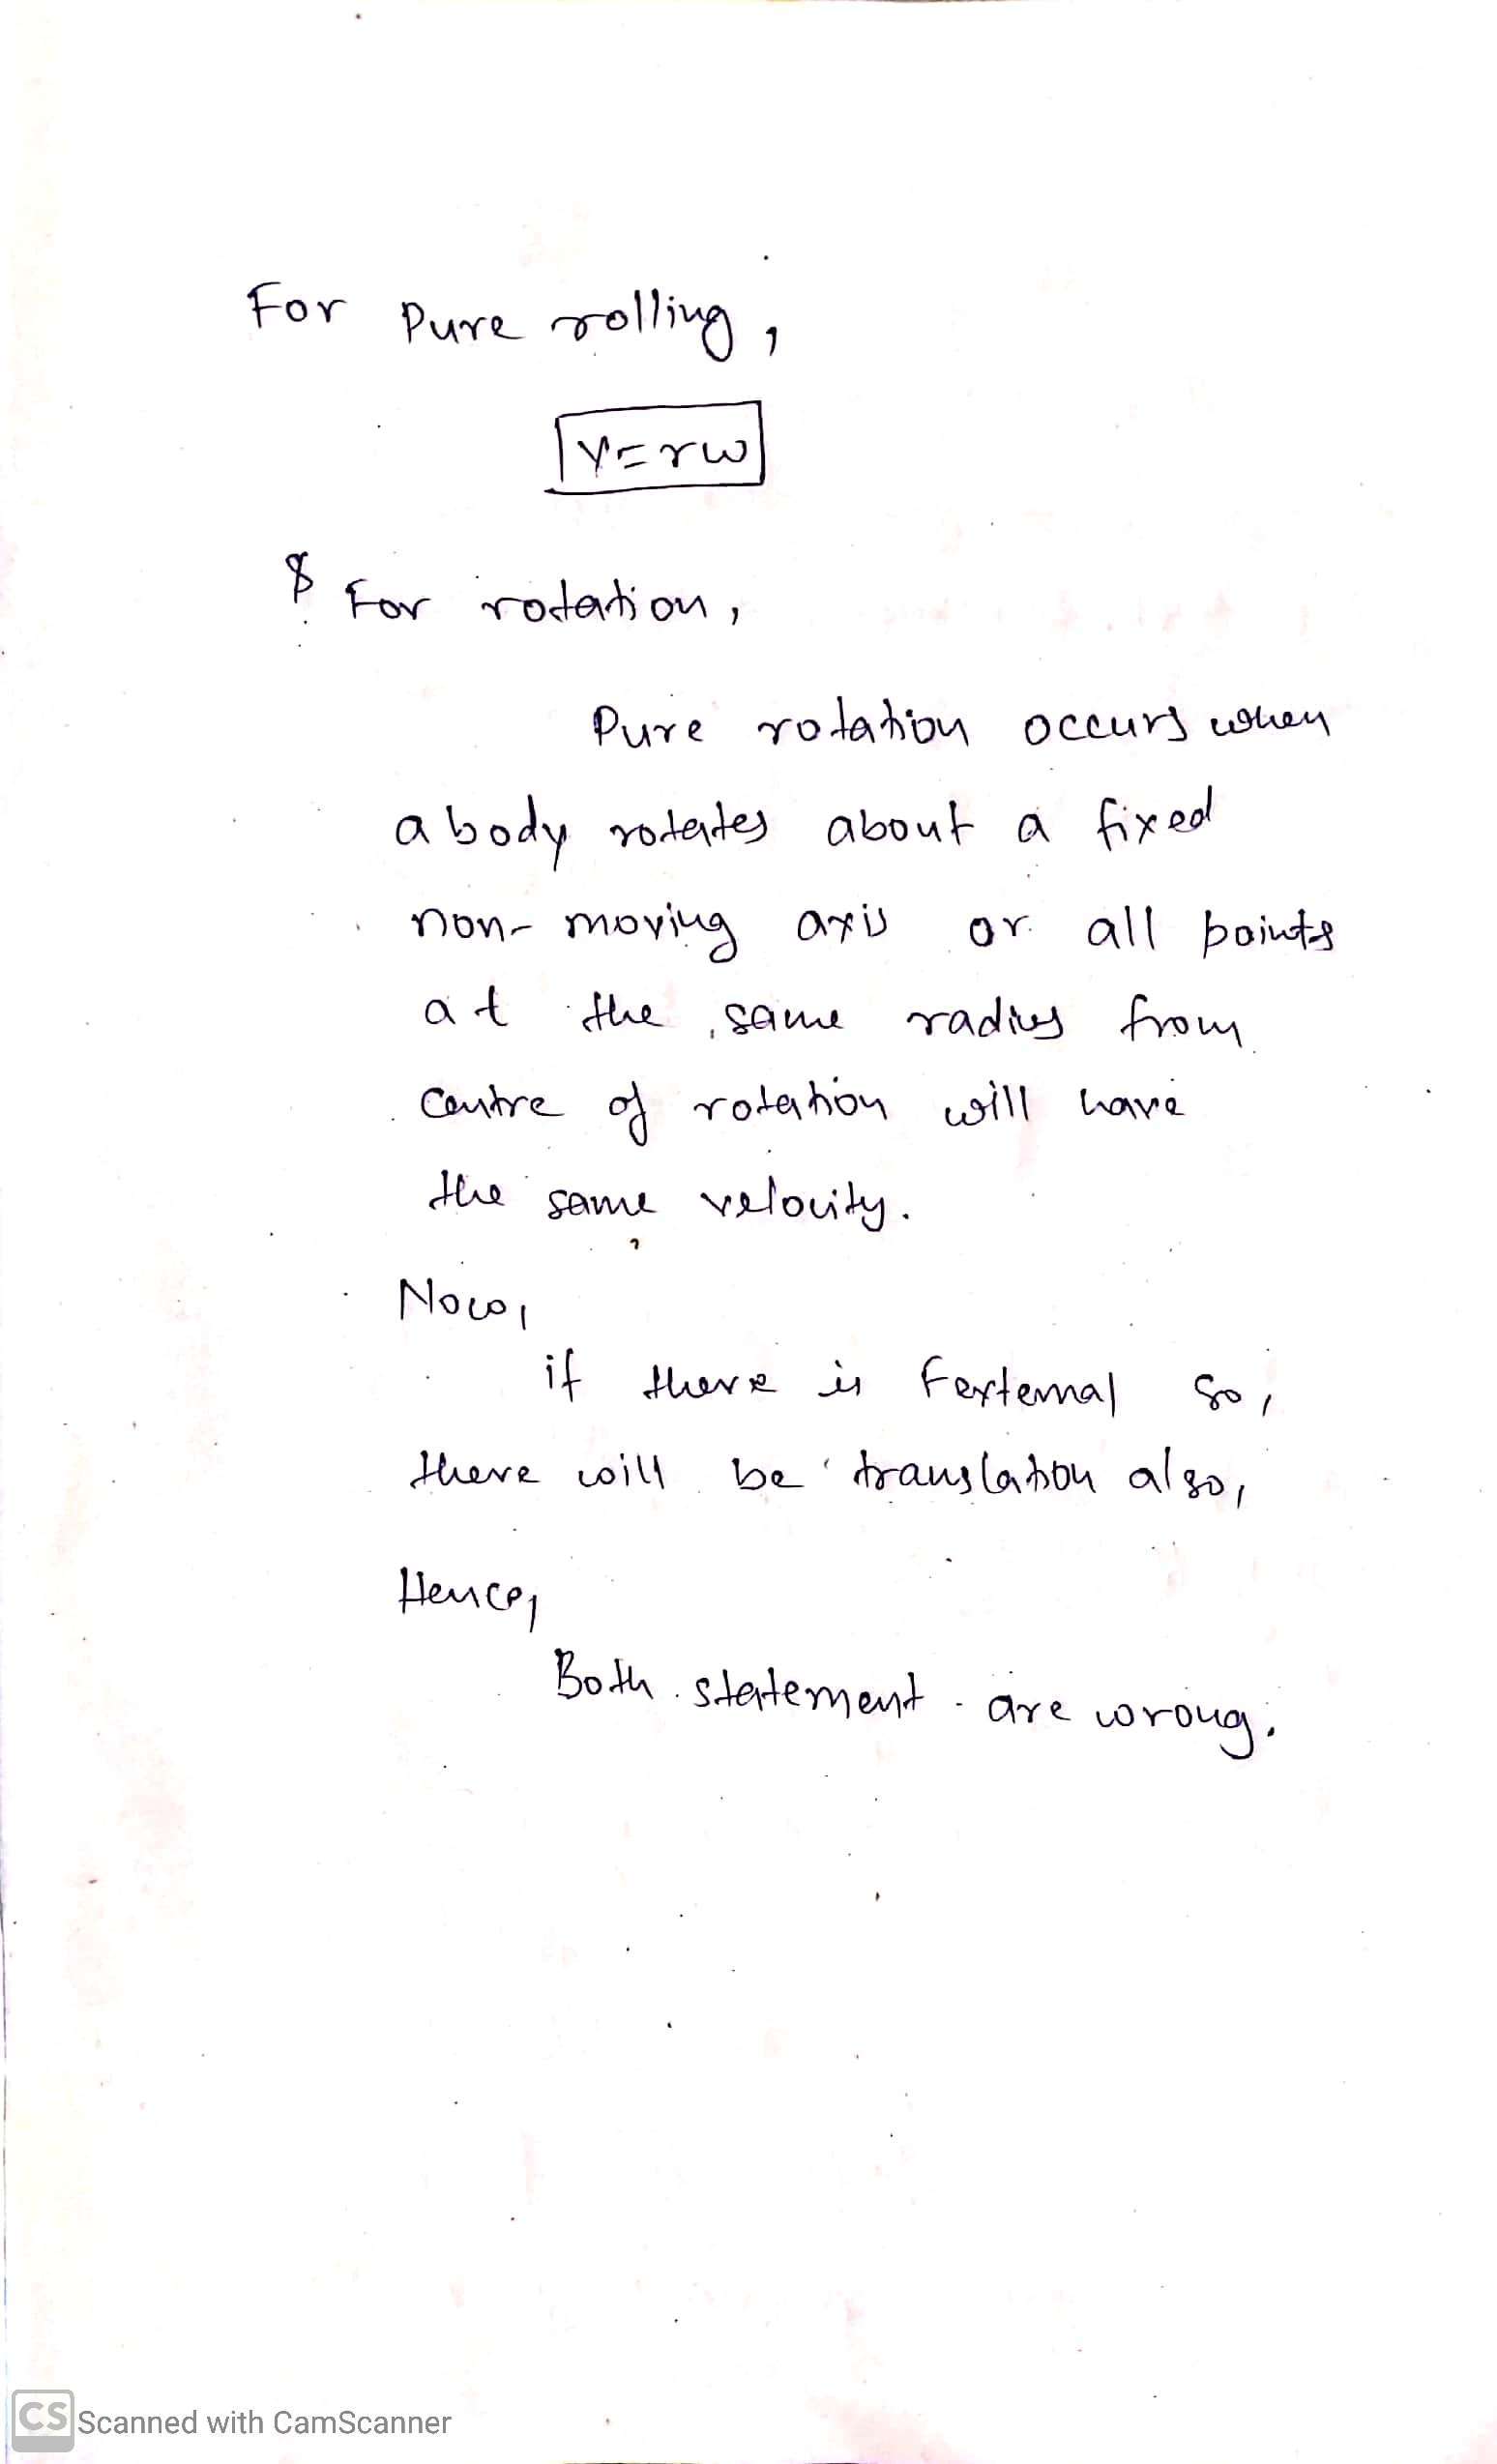 For Pure rolling,
V=rw
$ For rotation,
Pure rotation occurs when
a body rotates about a fixed
non-moving axis or all points
at the same radius from
centre of rotation will have
the same velocity.
Now,
if there is Fexternal so,
there will be translation also,
Hence,
Both statement are wrong.
CS Scanned with CamScanner